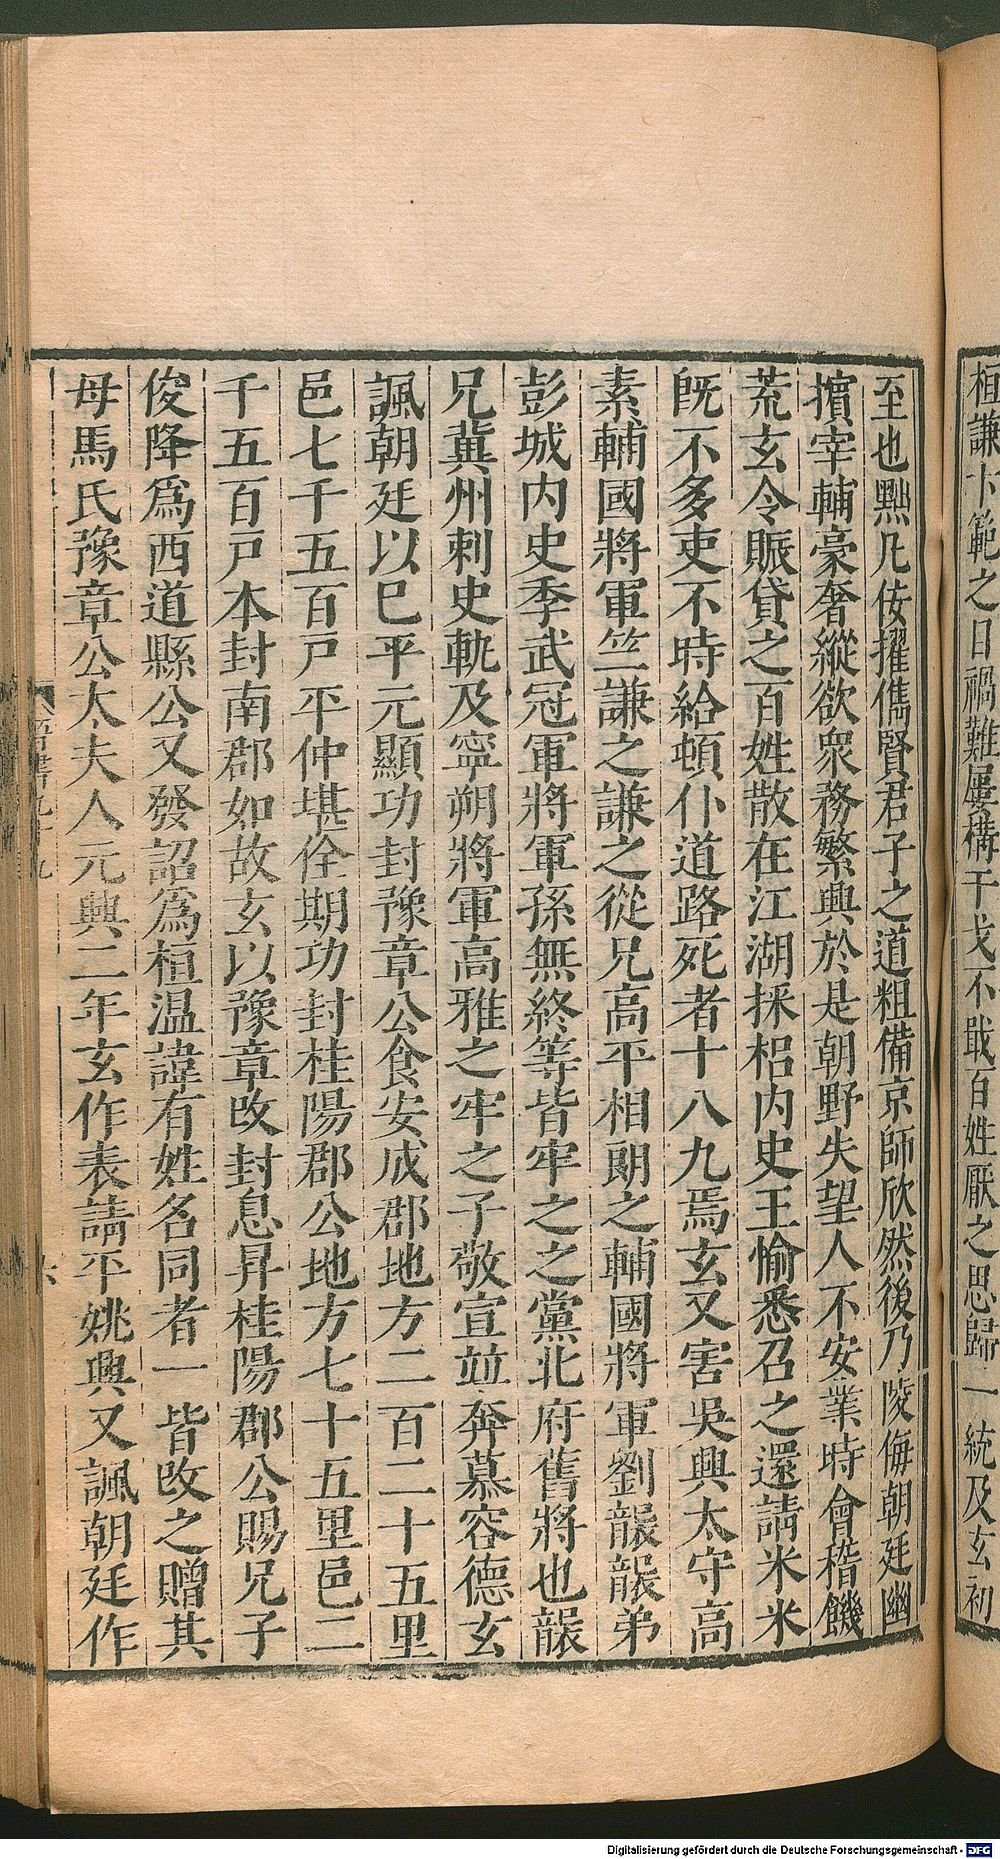 桓謙卞範之日禍難屢構干戈不戢百姓厭之思歸一統及玄初
至也黜凡佞擢儁賢君子之道粗備京師欣然後乃陵侮朝廷幽
擯宰輔豪奢縱欲衆務繁興於是朝野失望人不安業時會稽饑
荒玄令賑貸之百姓散在江湖採梠内史王愉悉召之還請米米
旣不多吏不時給頓仆道路死者十八九焉玄又害吳興太守高
素輔國將軍竺謙之謙之從兄高平相朗之輔國將軍劉襲襲弟
彭城内史季武冠軍將軍孫無終等皆牢之之黨北府舊將也襲
兄冀州刺史軌及寧朔將軍高雅之牢之子敬宣並奔慕容德玄
諷朝廷以巳平元顯功封豫章公食安成郡地方二百二十五里
邑七千五百戸平仲堪佺期功封桂陽郡公地方七十五里邑二
千五百戸本封南郡如故玄以豫章改封息昇桂陽郡公賜兄子
俊降爲西道縣公又發詔爲桓温諱有姓名同者一皆改之贈其
母馬氏豫章公太夫人元興二年玄作表請平姚興又諷朝廷作
Digitalisierung gefördert durch die Deutsche Forschungsgemeinschaft - DFG